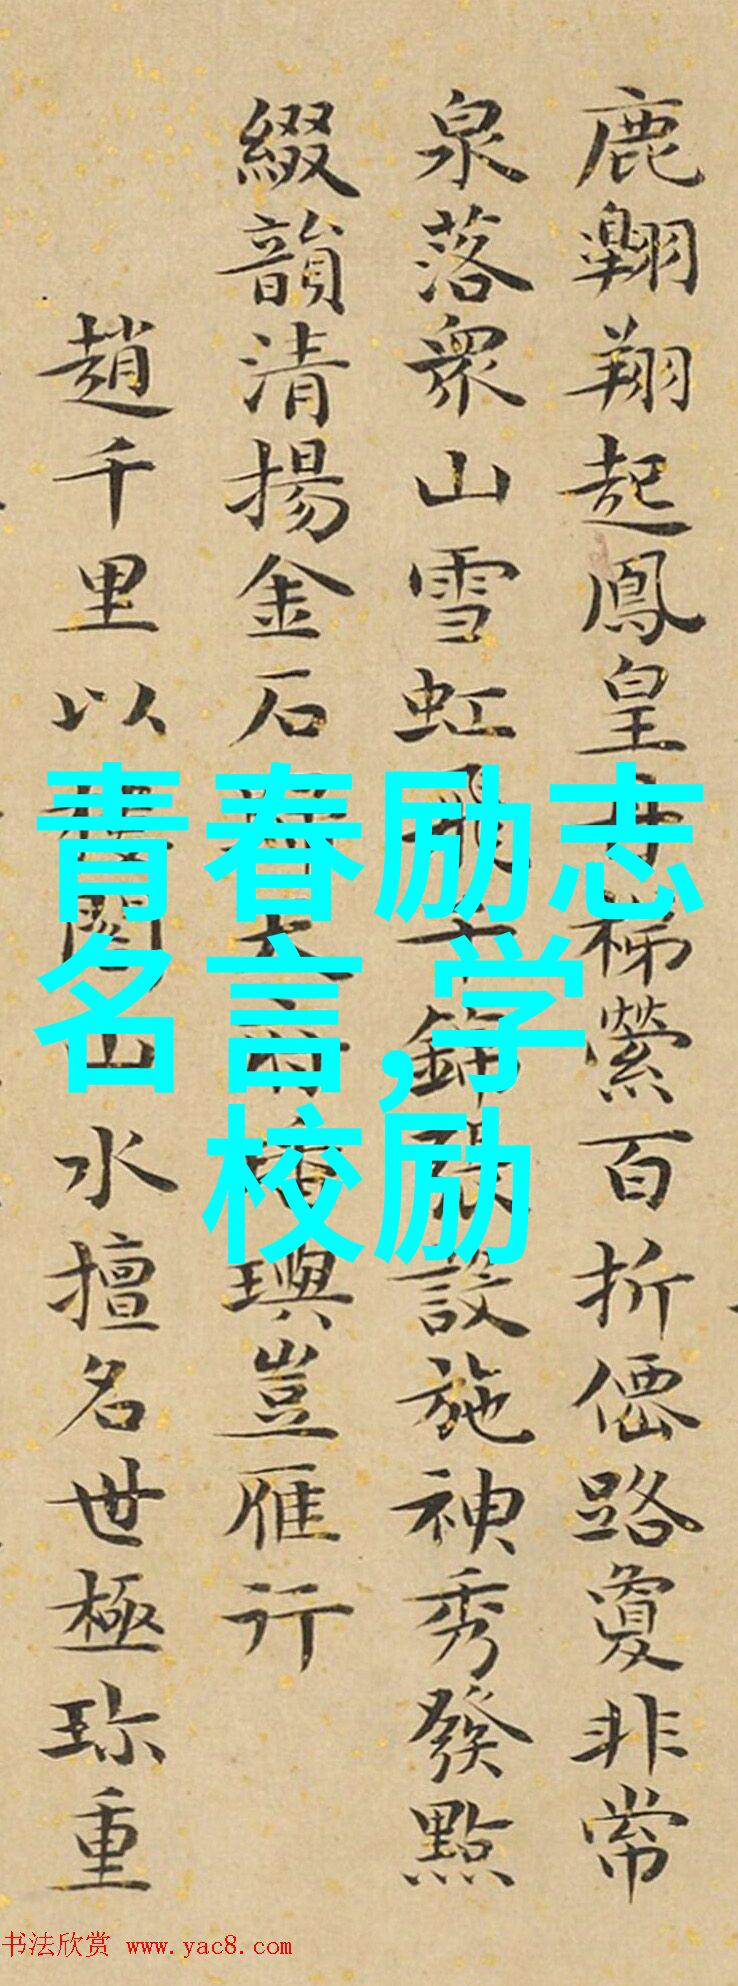 鹿翺翔起鳳皇丹梯縈百折僊路敻非常
泉落衆山雪虹飛千錦張設施神秀發點
綴韻清揚金石大璵豈雁行
趙千里以樓閣山水擅名世極珎重
青春励志
名言,学
校励
书法欣赏 www.yac8.com